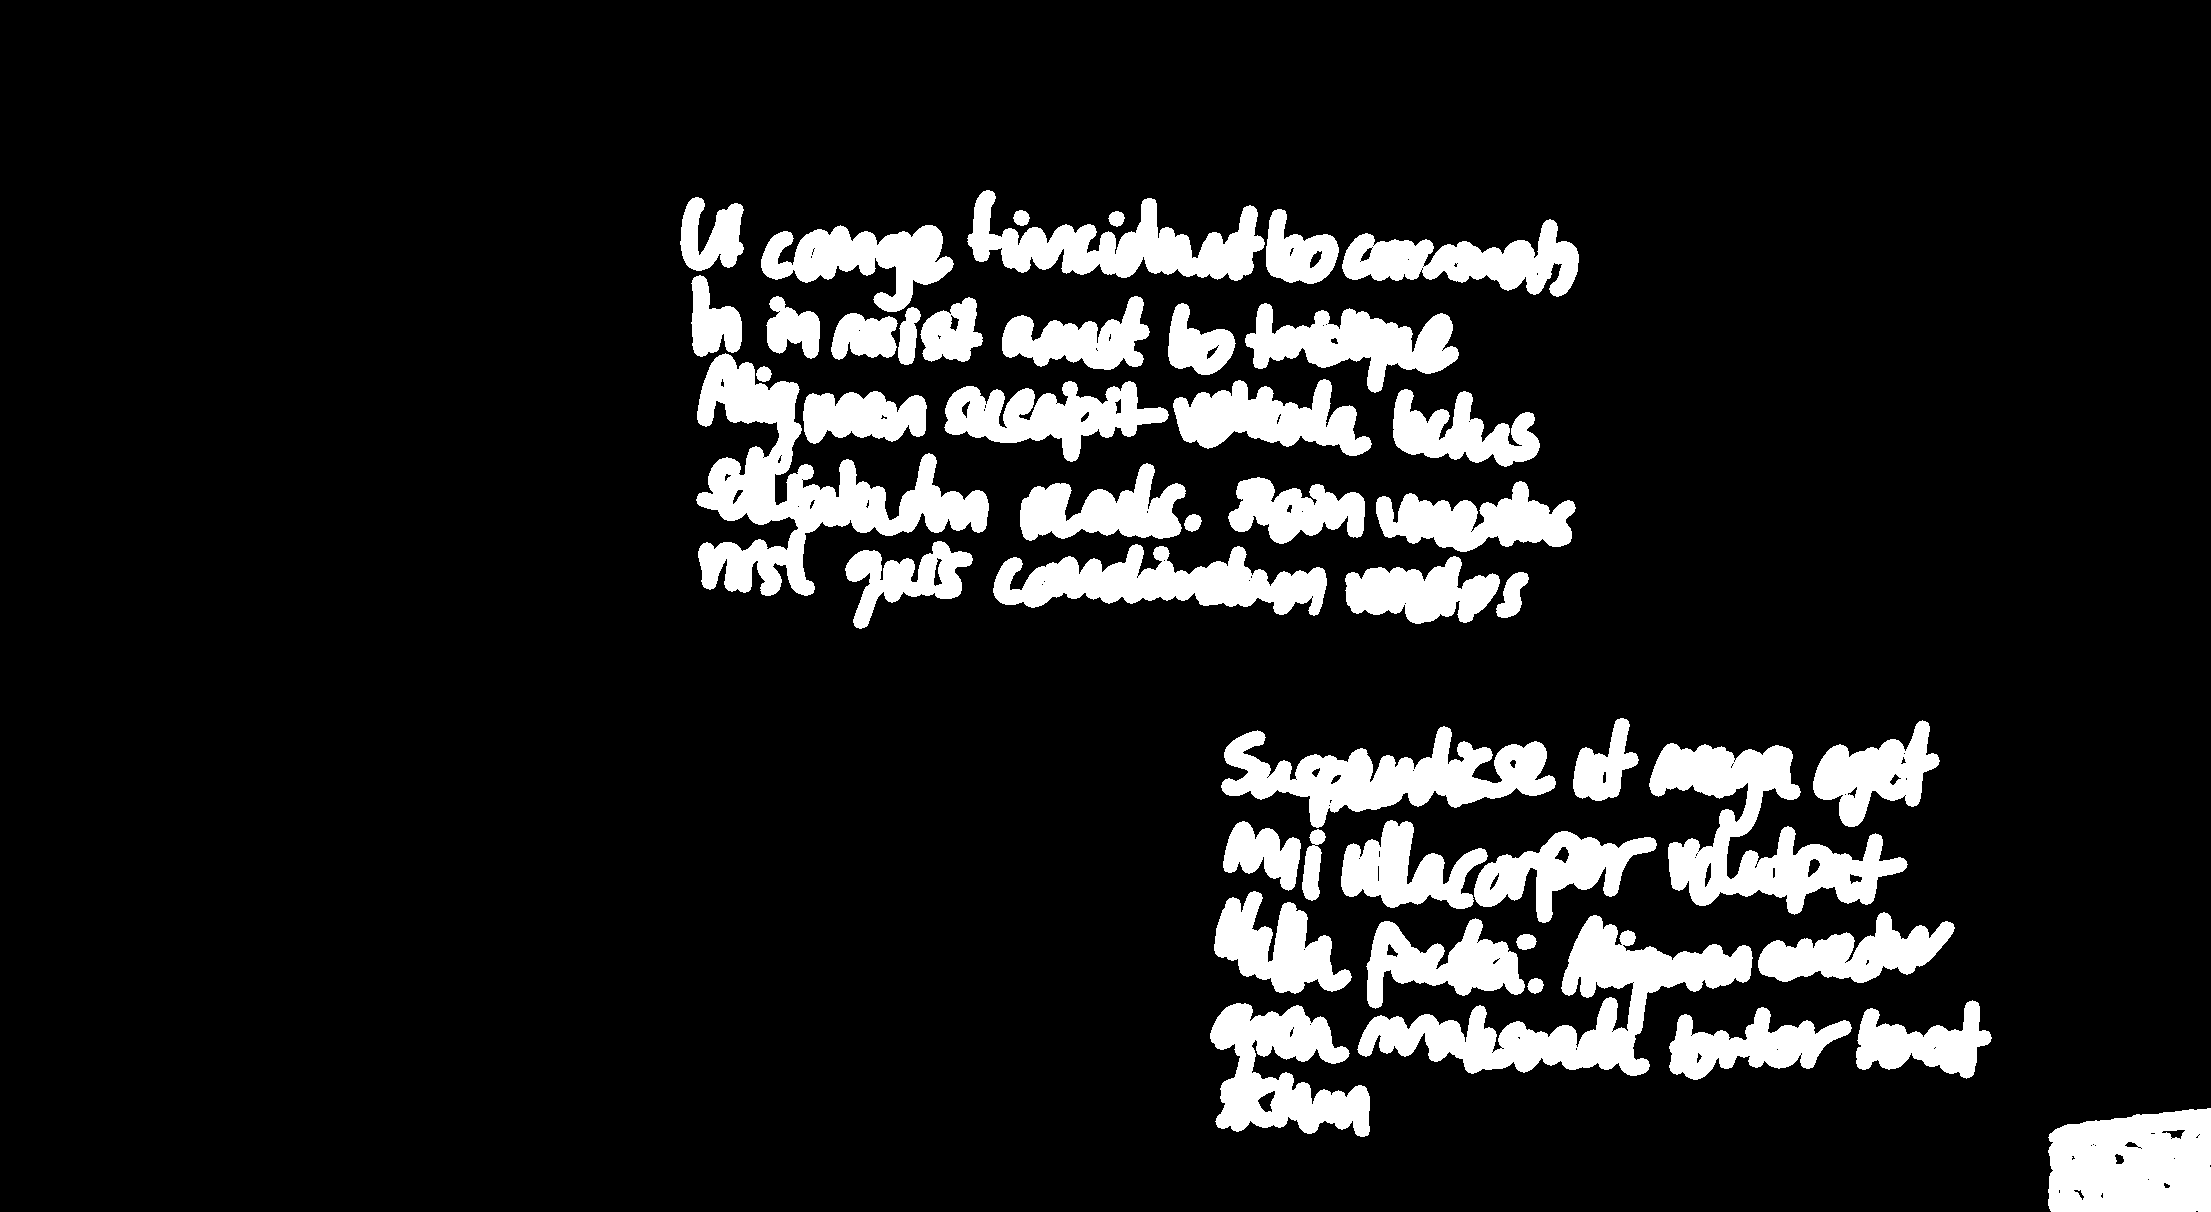 Ut conge tincidunt leo commodo
In in nisi sit amet leo tristique
Aliquam suscipit vehicula lectus
sollicitudin iaculis. Proin maximus
nisl quis condimentum
Suspendisse ut magna eget
mi ullamcorper volutpat
Nulla facilisi. Aliquam auctor
quam malesuada tortor